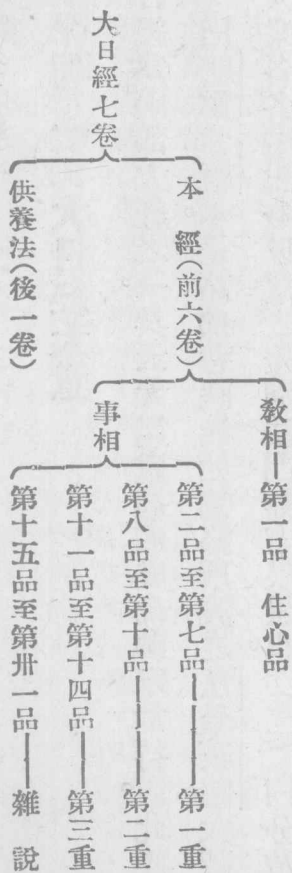 大日經七卷
本　經（前六卷）
教相—第一品　住心品
事相
第二品至第七品——第一重
第八品至第十品——第二重
第十一品至第十四品——第三重
第十五品至第卅一品——雜　說
供養法（後一卷）